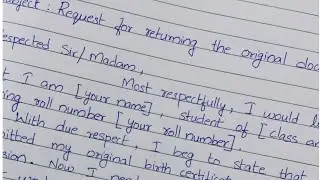 bject : Request for returning the original doc
espected Sir/Madam,
Most respectfully, I would li
t I am [your name], student of [class an
ing roll number [your roll number].
With due respect, I beg to state that
itted my original birth certific
sion. Now I need